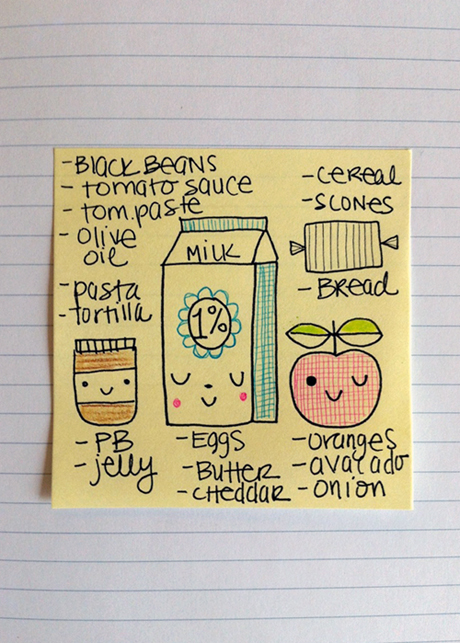 - BlACK BEANS
- tomato sauce
- tom.paste
- olive
oil
- pasta
- tortilla
MiLK
1%
- CEREAL
- SCONES
- BREAD
- PB
- jelly
- EGGS
- BUTTER
- CHEDDAR
- ORANGES
- avacado
- ONION